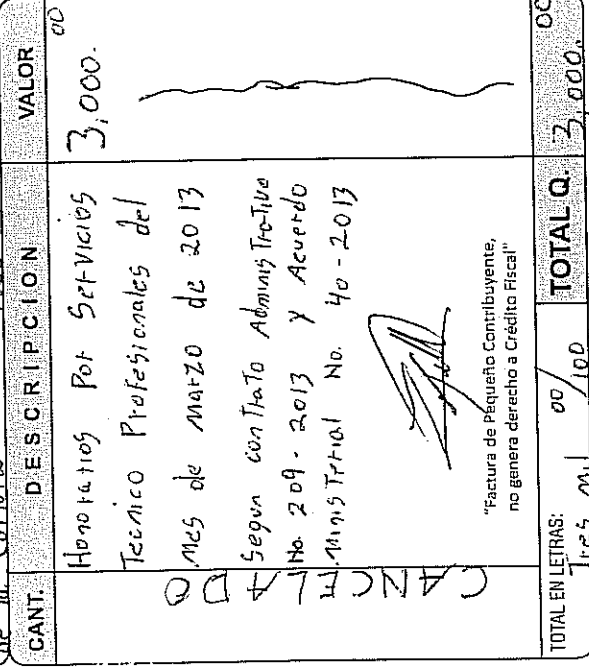 CANT. DESCRIPCION VALOR
Honorarios Por Servicios 3,000.00
Tecnico Profesionales del
Mes de Marzo de 2013
Segun contrato Administrativo
No. 209-2013 y Acuerdo
Ministerial No. 40-2013
CANCELADO
"Factura de Pequeño Contribuyente,
no genera derecho a Crédito Fiscal"
TOTAL EN LETRAS: TOTAL Q. 3,000.00
Tres mil 00/100